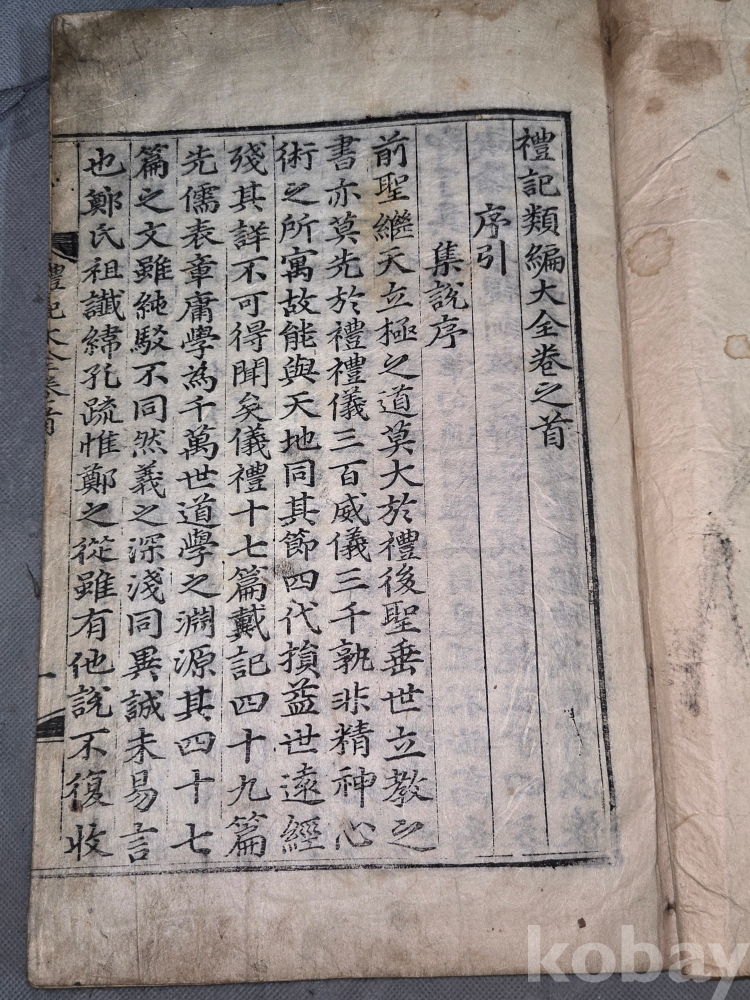 禮記類編大全卷之首
序引
集說序
前聖繼天立極之道莫大於禮後聖垂世立教之
書亦莫先於禮禮儀三百威儀三千孰非精神心
術之所寓故能與天地同其節四代損益世遠經
殘其詳不可得聞矣儀禮十七篇戴記四十九篇
先儒表章庸學為千萬世道學之淵源其四十七
篇之文雖純駁不同然義之深淺同異誠未易言
也鄭氏祖讖緯孔疏惟鄭之從雖有他說不復收
禮記大全卷首
一
kobay